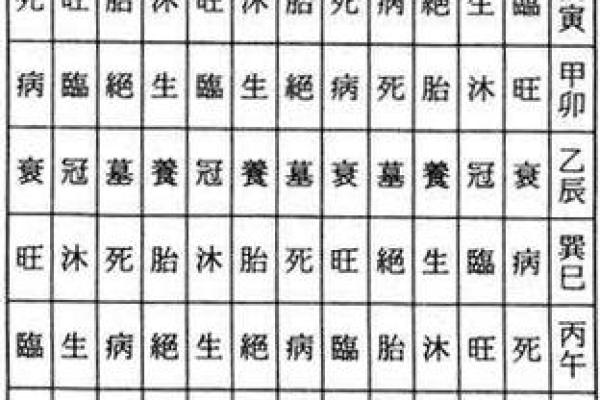 死 旺 胎 沐 旺 沐 胎 死 病 絕 生 臨 寅
病 臨 絕 生 臨 生 絕 病 死 胎 沐 旺 甲卯
衰 冠 墓 養 冠 養 墓 衰 墓 養 冠 衰 乙辰
旺 沐 死 胎 沐 胎 死 旺 絕 生 臨 病 巽巳
臨 生 病 絕 生 絕 病 臨 胎 沐 旺 死 丙午